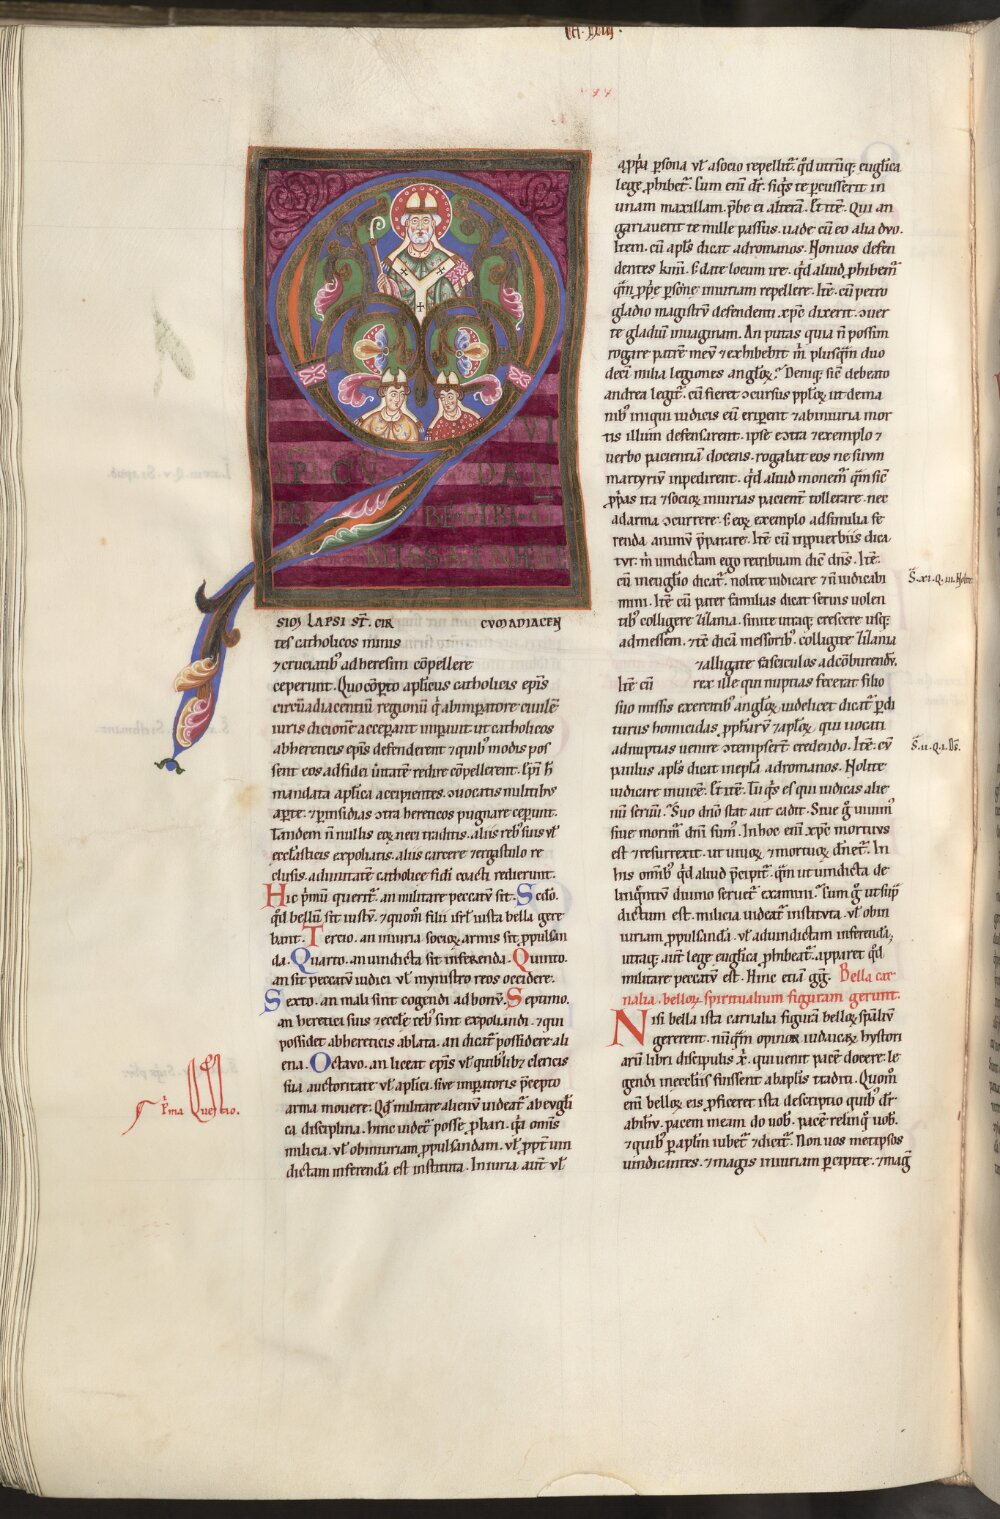 VI
EP͞I CV̄ DAM
PLE BE SIBI C̄
MISSA IN HERE
SIOɱ LAPSI ST̄. CIR CVMADIACEN
tes catholicos minis
⁊cruciatib; ad heresim cōpellere
ceperunt. Quo cōpto apl̄icus catholicis ep̄is
circūadiacentiū regionū q̄ ab imp̄atore ciuilē
iuris dicionē acceperant imꝑauit ut catholicos
ab hereticis ep̄is defenderent ⁊ quib; modis pos
sent eos ad fidei ūitatē redire cōpellerent. Ep̄i h̄
mandata apl̄ica accipientes. ɔuocatis militib;
aꝑte. ⁊ ꝑ insidias ɔtra hereticos pugnare ceperunt.
Tandem n̄ nullis eoꝝ neci traditis. aliis reb; suis ul̄
eccl̄asticis expoliatis. aliis carcere ⁊ ergastulo re
clusis. ad unitatē catholice fidi coacti redierunt.
Hic p̄mū querit̄. an militare peccatū sit. Scd̄o.
qd̄ bellū sit iustū. ⁊ quom̄ filii isrl̄ iusta bella gere
bant. Tercio. an iniuria socioꝝ armis sit ꝓpulsan
da. Quarto. an uindicta sit inferenda. Quinto.
an sit peccatū iudici ul̄ mynistro reos occidere.
Sexto. an mali sint cogendi ad bonū. Septimo.
an heretici suis ⁊ eccl̄e reb; sint expoliandi. ⁊ qui
possidet ab hereticis ablata. an dicat̄ possidere ali
ena. Octavo. an liceat ep̄is ul̄ quib;lib; clericis
sua auctoritate ul̄ apl̄ici. siue imꝑatoris p̄cepto
arma mouere. Qd̄ militare alienū uideat̄ ab eugl̄i
ca disciplina. hinc uidet̄ posse ꝓbari. q̄a omnis
milicia. ul̄ ob iniuriam ꝓpulsandam. ul̄ ꝓpt̄ uin
dictam inferendā est instituta. Iniuria aut̄ ul̄
P̄ma Questio.
a ꝓp̄a ꝑsona ul̄ a socio repellit̄. qd̄ utrūq; eugl̄ica
lege ꝓhibet̄. Cum eni̅ dr̄. siq̄s te percusserit in
unam maxillam. p̄be ei alterā. Et itē. Qui an
gariauerit te mille passus. uade cū eo alia duo.
Item. cū apl̄s dicat ad romanos. Non uos defen
dentes kmi̅. s; date locum ire. qd̄ aliud ꝓhibem̄
q̄m ꝓp̄e ꝑsone iniuriam repellere. Itē. cū petro
gladio magistrū defendenti xp̄c dixerit. ɔuer
te gladiū in uaginam. An putas quia n̄ possim
rogare patrē meū ⁊ exhibebit m̄ plusq̄m duo
deci̅ milia legiones angl̄oꝝ? Deniq; sic̄ de beato
andrea legit̄. cū fieret ɔcursus ppl̄oꝝ. ut de ma
nib; iniqui iudicis eū eriꝑent ⁊ ab iniuria mor
tis illum defensarent. ipse eɔtra ⁊ exemplo ⁊
uerbo pacientiā docens. rogabat eos ne suum
martyriū inpedirent. qd̄ aliud monem̄ q̄m sic̄
ꝓp̄as ita ⁊ socioꝝ iniurias pacient̄ tollerare. nec
ad arma ɔcurrere. s; eoꝝ exemplo ad similia fe
renda animū p̄parare. Itē cū in ꝓuerbiis dica
tur. m̄ uindictam ego retribuam dic̄ dn̄s. Itē.
cū in eugl̄io dicat̄. nolite iudicare ⁊ n̄ iudicabi
mini. Itē cū pater familias dicat seruis uolen
tib; colligere zizania. sinite utraq; crescere usq;
ad messem. ⁊ tc̄ dicā messorib;. colligite zizania
⁊ alligate fasciculos ad cōburendū.
Itē cū rex ille qui nuptias fecerat filio
suo missis exercitib; angl̄oꝝ uidelicet dicat̄ ꝑdi
turus homicidas ꝓphārū ⁊ apl̄oꝝ. qui uocati
ad nuptias uenire ɔtempserūt credendo. Itē. cū
paulus apl̄s dicat in epl̄a ad romanos. Nolite
iudicare inuicē. Et itē. Tu q̄s es qui iudicas alie
nū seruū? Suo dn̄o stat aut cadit. Siue g̊ uiuim;
siue morim̄ dn̄i sum;. In hoc eni̅ xp̄c mortuus
est ⁊ resurrexit. ut uiuoꝝ ⁊ mortuoꝝ dn̄et̄. In
his omib; qd̄ aliud p̄cipit̄. q̄m ut uindicta de
linq̄ntiū diuino seruet̄ examini. Cum g̊ ut sup̄
dictum est. milicia uideat̄ instituta. ul̄ ob in
iuriam ꝓpulsandā. ul̄ ad uindictam inferendā.
utraq; aut̄ lege eugl̄ica ꝓhibeat̄. apparet qd̄
militare peccatū est. Hinc etiā gg̅. Bella car
nalia. belloꝝ spiritualium figuram gerunt.
Nisi bella ista carnalia figurā belloꝝ sp̄aliū
gererent. nūq̄m opinor iudaicaꝝ hystori
arū libri discipulis x̄. qui uenit pacē docere. le
gendi in eccl̄iis fuissent ab apl̄is tͣditi. Quom̄
eni̅ belloꝝ eis ꝓficeret ista descriptio quib; dr̄
ab ihū. pacem meam do uob̄. pacē relinq̄ uob̄.
⁊ quib; ꝑ apl̄m iubet̄ ⁊ dicit̄. Non uos metipsos
uindicantes. ⁊ magis iniuriam ꝑcipite. ⁊ mag̅
S̄. xi. Q. iii. Nolite
S̄. ii. Q. i. Ds̄.